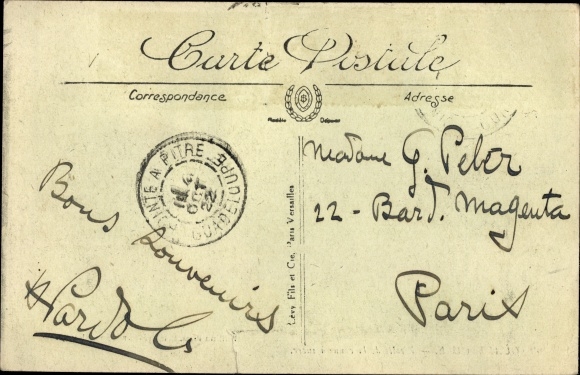 Carte Postale
Correspondance
Adresse
Modèle Déposé
POINTE A PITRE
GUADELOUPE
OCT
22
Bons souvenirs
Lévy Fils et Cie, Paris Versailles
Madame G. Peltér
22 - Bard. Magenta
Paris